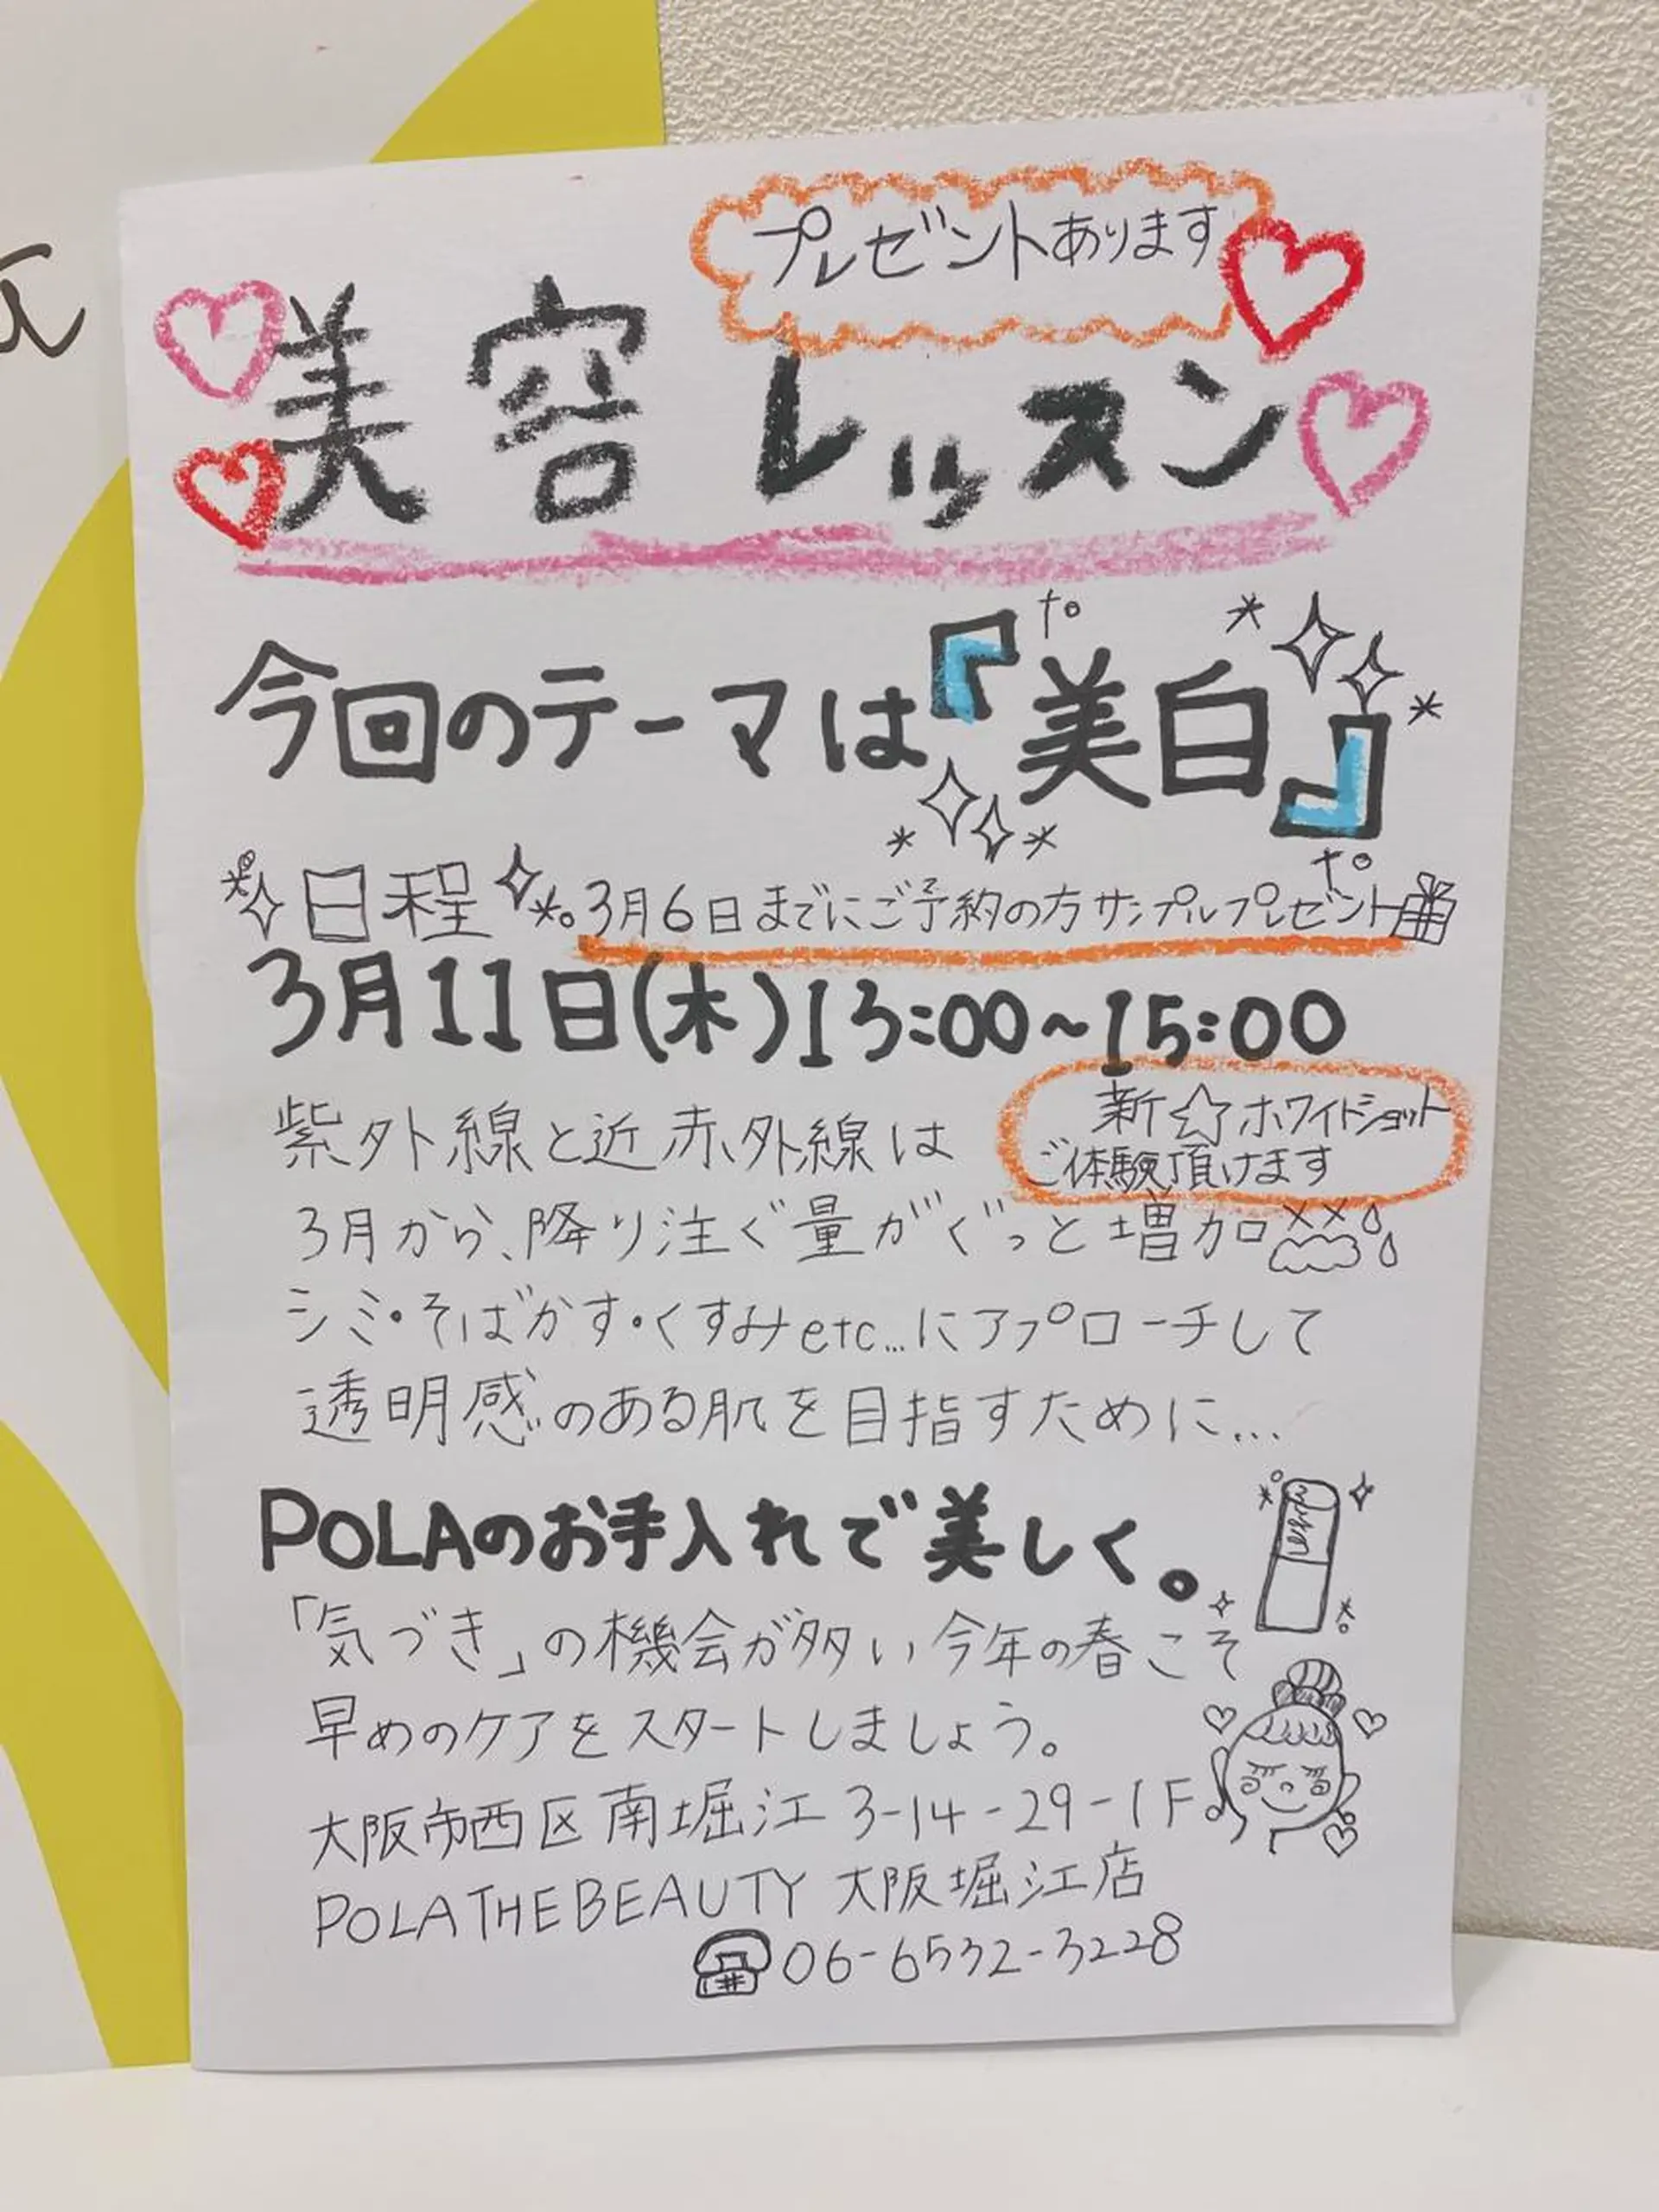 プレゼントあります
美容レッスン
今回のテーマは『美白』
日程 3月6日までにご予約の方サンプルプレゼント
3月11日(木)13:00~15:00
新☆ホワイトショット
ご体験頂けます
紫外線と近赤外線は
3月から、降り注ぐ量がぐっと増加
シミ・そばかす・くすみetc...にアプローチして
透明感のある肌を目指すために...
POLAのお手入れで美しく。
「気づき」の機会が多い今年の春こそ
早めのケアをスタートしましょう。
大阪市西区南堀江3-14-29-1F
POLA THE BEAUTY 大阪堀江店
☎06-6532-3228